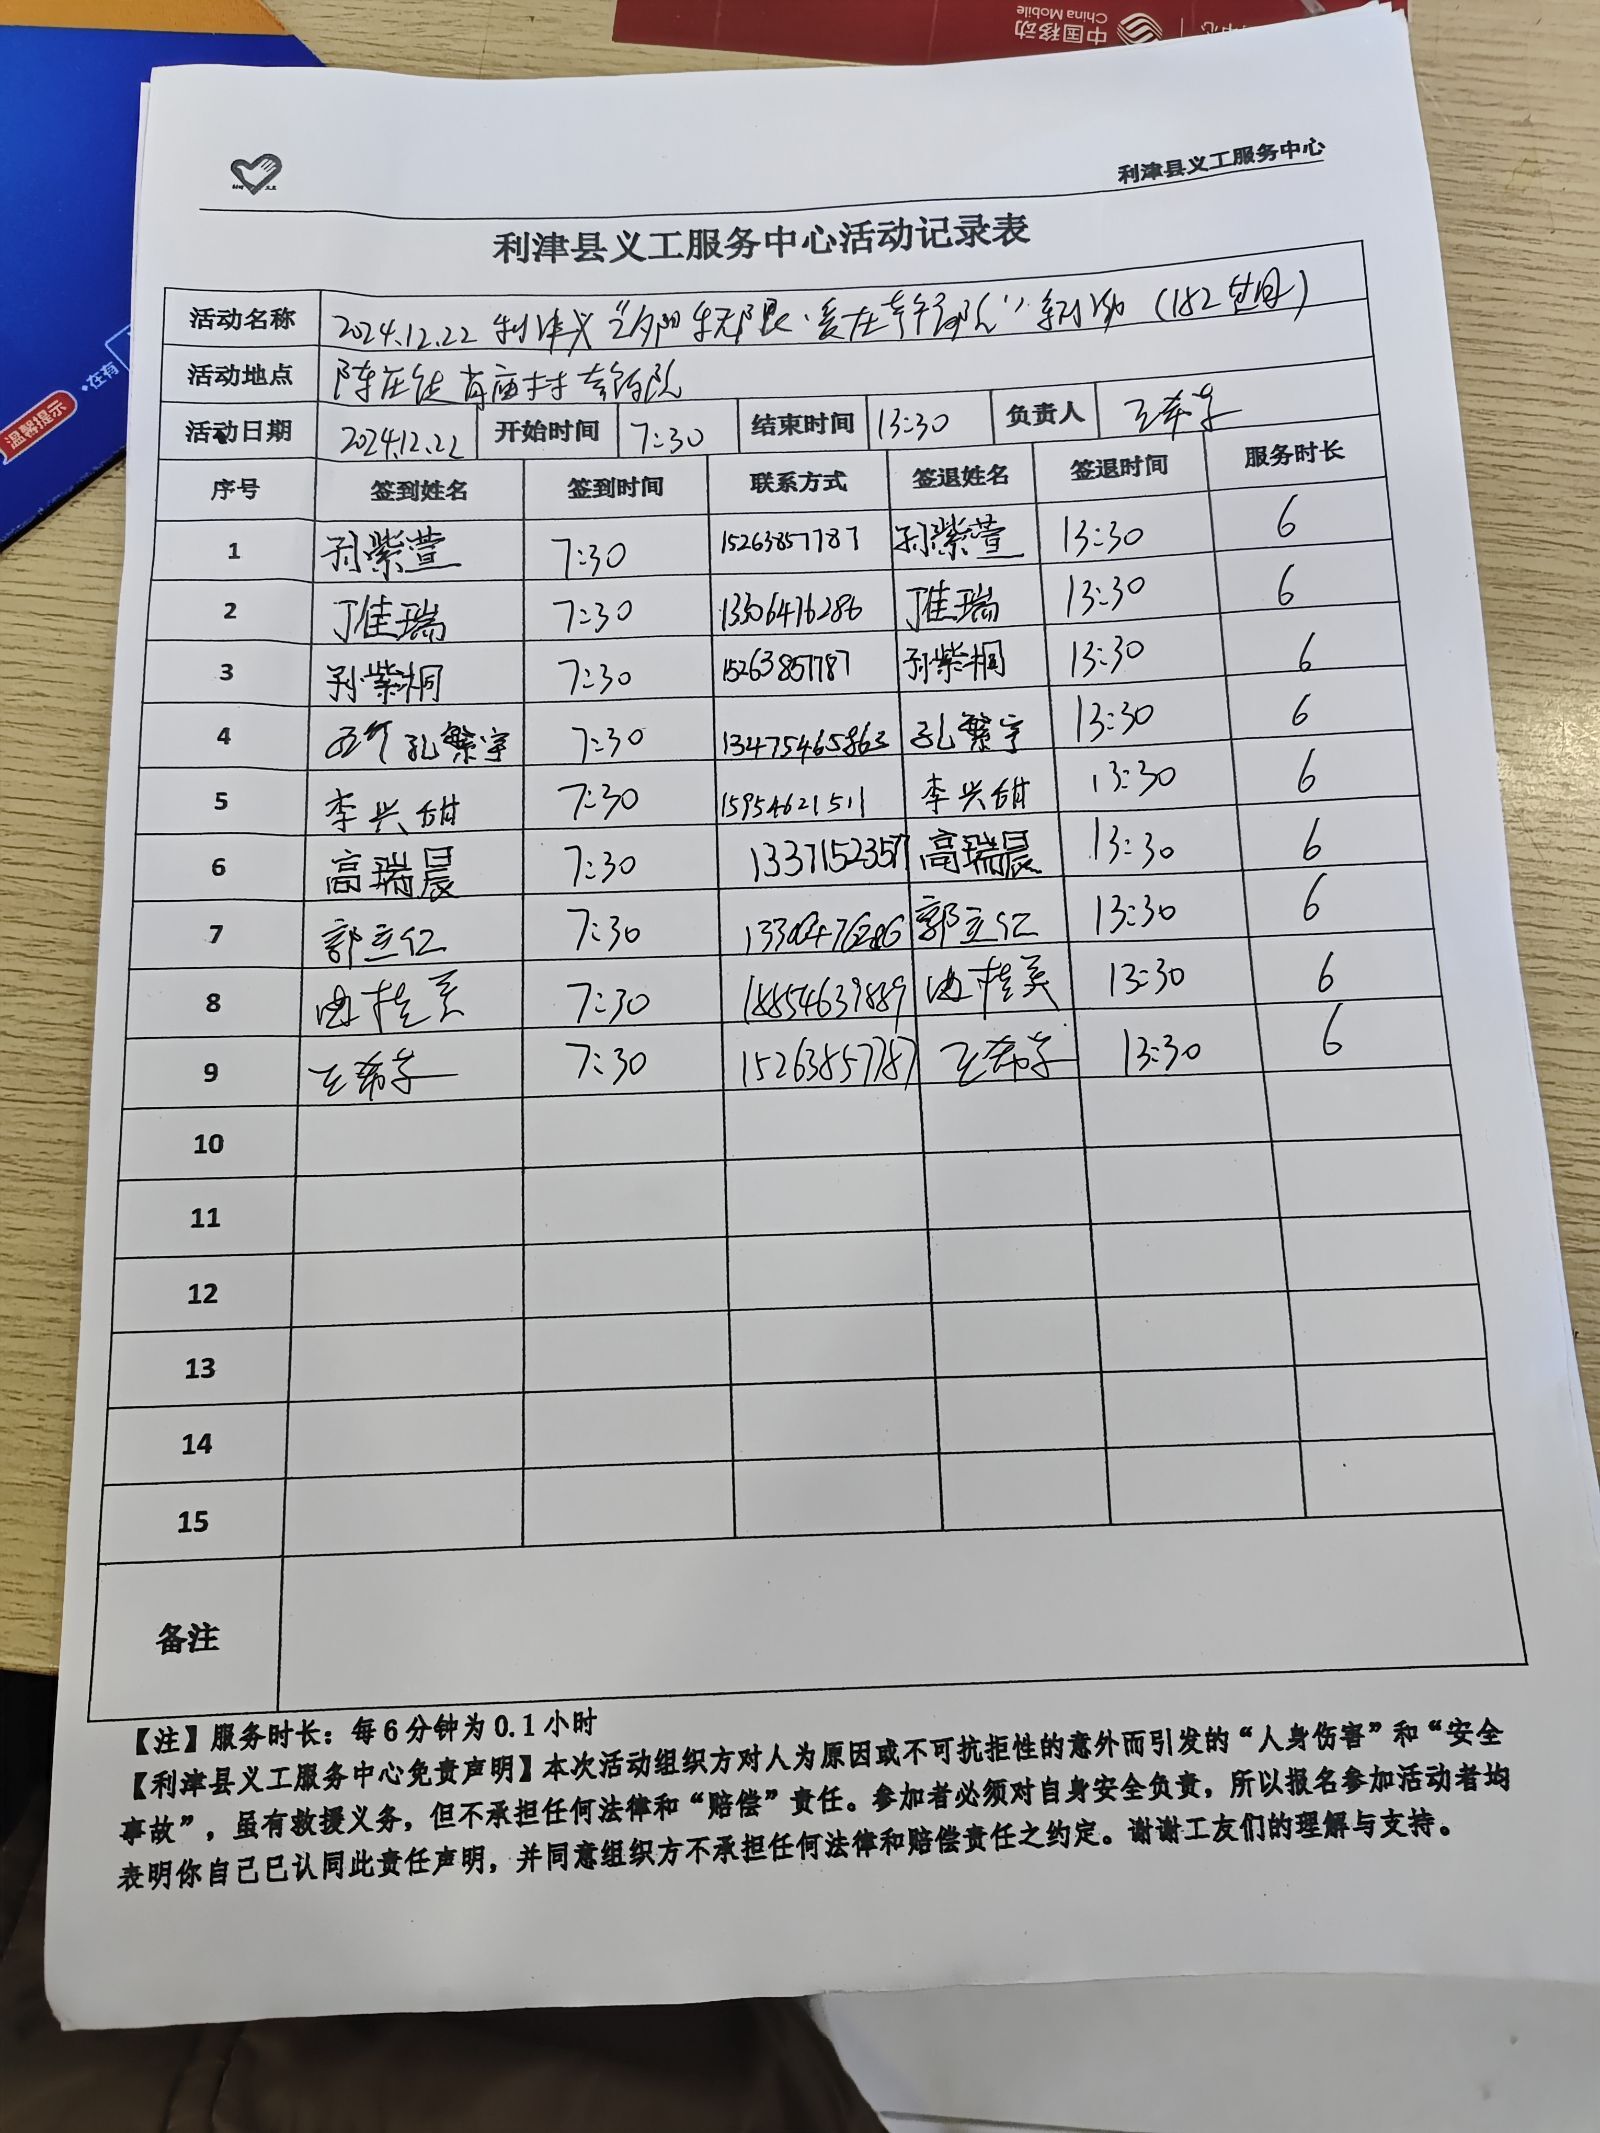 中国移动
China Mobile
温馨提示
·在有
利津县义工服务中心
利津县义工服务中心活动记录表
活动名称 2024.12.22 利津义工"夕阳无限·爱在幸福院"系列活动(182
活动地点 陈庄镇 庙村幸福院
活动日期 2024.12.22 开始时间 7:30 结束时间 13:30 负责人 王希学
序号 签到姓名 签到时间 联系方式 签退姓名 签退时间 服务时长
1 孙紫萱 7:30 15263857787 孙紫萱 13:30 6
2 丁佳瑞 7:30 13306476286 丁佳瑞 13:30 6
3 孙紫桐 7:30 15263857787 孙紫桐 13:30 6
4 孔繁宇 7:30 13475465863 孔繁宇 13:30 6
5 李兴甜 7:30 15954621511 李兴甜 13:30 6
6 高瑞晨 7:30 13371523577 高瑞晨 13:30 6
7 郭立仁 7:30 郭立仁 13:30 6
8 曲桂美 7:30 18854639889 曲桂美 13:30 6
9 王希学 7:30 15263857787 王希学 13:30 6
10
11
12
13
14
15
备注
【注】服务时长：每6分钟为0.1小时
【利津县义工服务中心免责声明】本次活动组织方对人为原因或不可抗拒性的意外而引发的“人身伤害”和“安全
事故”，虽有救援义务，但不承担任何法律和“赔偿”责任。参加者必须对自身安全负责，所以报名参加活动者均
表明你自己已认同此责任声明，并同意组织方不承担任何法律和赔偿责任之约定。谢谢工友们的理解与支持。